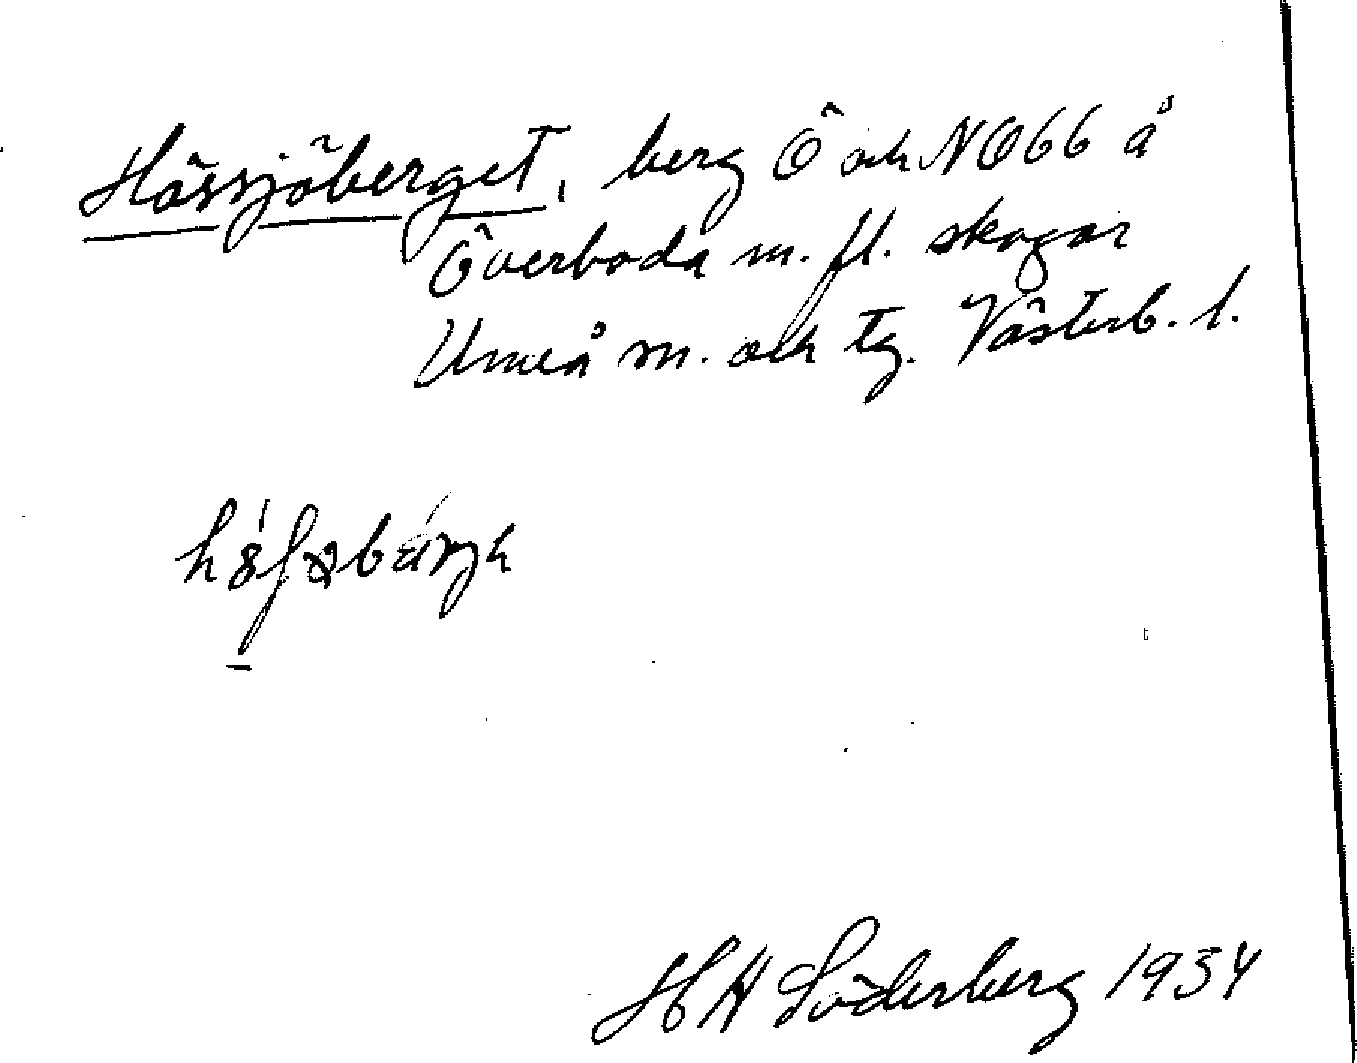 Hössjöberget, berg Ö och NO66 å
Överboda m. fl. skogar
Umeå m. och tg. Västerb. l.
H H Söderberg 1934